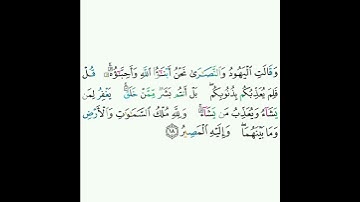 وَقَالَتِ الْيَهُودُ وَالنَّصَارَىٰ نَحْنُ أَبْنَاءُ اللَّهِ وَأَحِبَّاؤُهُ ۚ قُلْ
فَلِمَ يُعَذِّبُكُم بِذُنُوبِكُم ۖ بَلْ أَنتُم بَشَرٌ مِّمَّنْ خَلَقَ ۚ يَغْفِرُ لِمَن
يَشَاءُ وَيُعَذِّبُ مَن يَشَاءُ ۚ وَلِلَّهِ مُلْكُ السَّمَاوَاتِ وَالْأَرْضِ
وَمَا بَيْنَهُمَا ۖ وَإِلَيْهِ الْمَصِيرُ ١٨